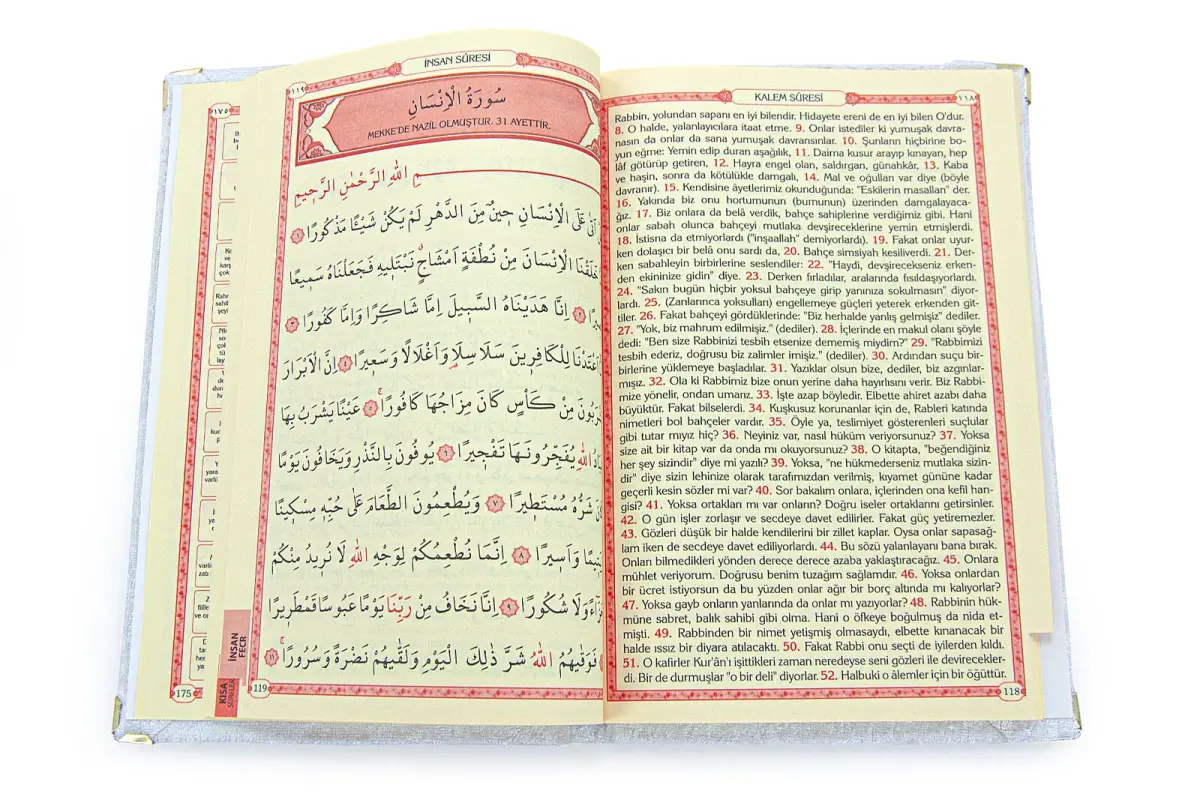 KALEM SÛRESİ
١١٨
Rabbin, yolundan sapanı en iyi bilendir. Hidayete ereni de en iyi bilen O'dur.
8. O halde, yalanlayıcılara itaat etme. 9. Onlar istediler ki yumuşak davra-
nasın da onlar da sana yumuşak davransınlar. 10. Şunların hiçbirine bo-
yun eğme: Yemin edip duran aşağılık, 11. Daima kusur arayıp kınayan, hep
lâf götürüp getiren, 12. Hayra engel olan, saldırgan, günahkâr, 13. Kaba
ve haşin, sonra da kötülükle damgalı, 14. Mal ve oğulları var diye (böyle
davranır). 15. Kendisine âyetlerimiz okunduğunda: "Eskilerin masalları" der.
16. Yakında biz onu hortumunun (burnunun) üzerinden damgalayaca-
ğız. 17. Biz onlara da belâ verdik, bahçe sahiplerine verdiğimiz gibi. Hani
onlar sabah olunca bahçeyi mutlaka devşireceklerine yemin etmişlerdi.
18. İstisna da etmiyorlardı ("inşaallah" demiyorlardı). 19. Fakat onlar uyur-
ken dolaşıcı bir belâ onu sardı da, 20. Bahçe simsiyah kesiliverdi. 21. Der-
ken sabahleyin birbirlerine seslendiler: 22. "Haydi, devşirecekseniz erken-
den ekininize gidin" diye. 23. Derken fırladılar, aralarında fısıldaşıyorlardı.
24. "Sakın bugün hiçbir yoksul bahçeye girip yanınıza sokulmasın" diyor-
lardı. 25. (Zanlarınca yoksulları) engellemeye güçleri yeterek erkenden git-
tiler. 26. Fakat bahçeyi gördüklerinde: "Biz herhalde yanlış gelmişiz" dediler.
27. "Yok, biz mahrum edilmişiz." (dediler). 28. İçlerinde en makul olanı şöyle
dedi: "Ben size Rabbinizi tesbih etsenize dememiş miydim?" 29. "Rabbimizi
tesbih ederiz, doğrusu biz zalimler imişiz." (dediler). 30. Ardından suçu bir-
birlerine yüklemeye başladılar. 31. Yazıklar olsun bize, dediler, biz azgınlar-
mışız. 32. Ola ki Rabbimiz bize onun yerine daha hayırlısını verir. Biz Rabbi-
mize yönelir, ondan umarız. 33. İşte azap böyledir. Elbette ahiret azabı daha
büyüktür. Fakat bilselerdi. 34. Kuşkusuz korunanlar için de, Rableri katında
nimetleri bol bahçeler vardır. 35. Öyle ya, teslimiyet gösterenleri suçlular
gibi tutar mıyız hiç? 36. Neyiniz var, nasıl hüküm veriyorsunuz? 37. Yoksa
size ait bir kitap var da onda mı okuyorsunuz? 38. O kitapta, "beğendiğiniz
her şey sizindir" diye mi yazılı? 39. Yoksa, "ne hükmederseniz mutlaka sizin-
dir" diye sizin lehinize olarak tarafımızdan verilmiş, kıyamet gününe kadar
geçerli kesin sözler mi var? 40. Sor bakalım onlara, içlerinden ona kefil han-
gisi? 41. Yoksa ortakları mı var onların? Doğru iseler ortaklarını getirsinler.
42. O gün işler zorlaşır ve secdeye davet edilirler. Fakat güç yetiremezler.
43. Gözleri düşük bir halde kendilerini bir zillet kaplar. Oysa onlar sapasağ-
lam iken de secdeye davet ediliyorlardı. 44. Bu sözü yalanlayanı bana bırak.
Onları bilmedikleri yönden derece derece azaba yaklaştıracağız. 45. Onlara
mühlet veriyorum. Doğrusu benim tuzağım sağlamdır. 46. Yoksa onlardan
bir ücret istiyorsun da bu yüzden onlar ağır bir borç altında mı kalıyorlar?
47. Yoksa gayb onların yanlarında da onlar mı yazıyorlar? 48. Rabbinin hük-
müne sabret, balık sahibi gibi olma. Hani o öfkeye boğulmuş da nida et-
mişti. 49. Rabbinden bir nimet yetişmiş olmasaydı, elbette kınanacak bir
halde ıssız bir diyara atılacaktı. 50. Fakat Rabbi onu seçti de iyilerden kıldı.
51. O kafirler Kur'ân'ı işittikleri zaman neredeyse seni gözleri ile devirecekler-
di. Bir de durmuşlar "o bir deli" diyorlar. 52. Halbuki o âlemler için bir öğüttür.
118
١١٩
İNSAN SÛRESİ
سُورَةُ الْاِنْسَانِ
MEKKE'DE NAZİL OLMUŞTUR. 31 AYETTİR.
بِسْمِ اللهِ الرَّحْمٰنِ الرَّحٖيمِ
اَتٰى عَلَى الْاِنْسَانِ حٖينٌ مِنَ الدَّهْرِ لَمْ يَكُنْ شَيْـًٔا مَذْكُورًا ١
خَلَقْنَا الْاِنْسَانَ مِنْ نُطْفَةٍ اَمْشَاجٍ نَبْتَلٖيهِ فَجَعَلْنَاهُ سَمٖيعًا
٢ اِنَّا هَدَيْنَاهُ السَّبٖيلَ اِمَّا شَاكِرًا وَاِمَّا كَفُورًا ٣
اَعْتَدْنَا لِلْكَافِرٖينَ سَلَاسِلَا وَاَغْلَالًا وَسَعٖيرًا ٤ اِنَّ الْاَبْرَارَ
يَشْرَبُونَ مِنْ كَأْسٍ كَانَ مِزَاجُهَا كَافُورًا ٥ عَيْنًا يَشْرَبُ بِهَا
عِبَادُ اللهِ يُفَجِّرُونَهَا تَفْجٖيرًا ٦ يُوفُونَ بِالنَّذْرِ وَيَخَافُونَ يَوْمًا
كَانَ شَرُّهُ مُسْتَطٖيرًا ٧ وَيُطْعِمُونَ الطَّعَامَ عَلٰى حُبِّهٖ مِسْكٖينًا
وَيَتٖيمًا وَاَسٖيرًا ٨ اِنَّمَا نُطْعِمُكُمْ لِوَجْهِ اللهِ لَا نُرٖيدُ مِنْكُمْ
جَزَٓاءً وَلَا شُكُورًا ٩ اِنَّا نَخَافُ مِنْ رَبِّنَا يَوْمًا عَبُوسًا قَمْطَرٖيرًا
فَوَقٰيهُمُ اللهُ شَرَّ ذٰلِكَ الْيَوْمِ وَلَقّٰيهُمْ نَضْرَةً وَسُرُورًا ١١
119
İNSAN
FECR
KISA
SÛRELER
١٧٥
175